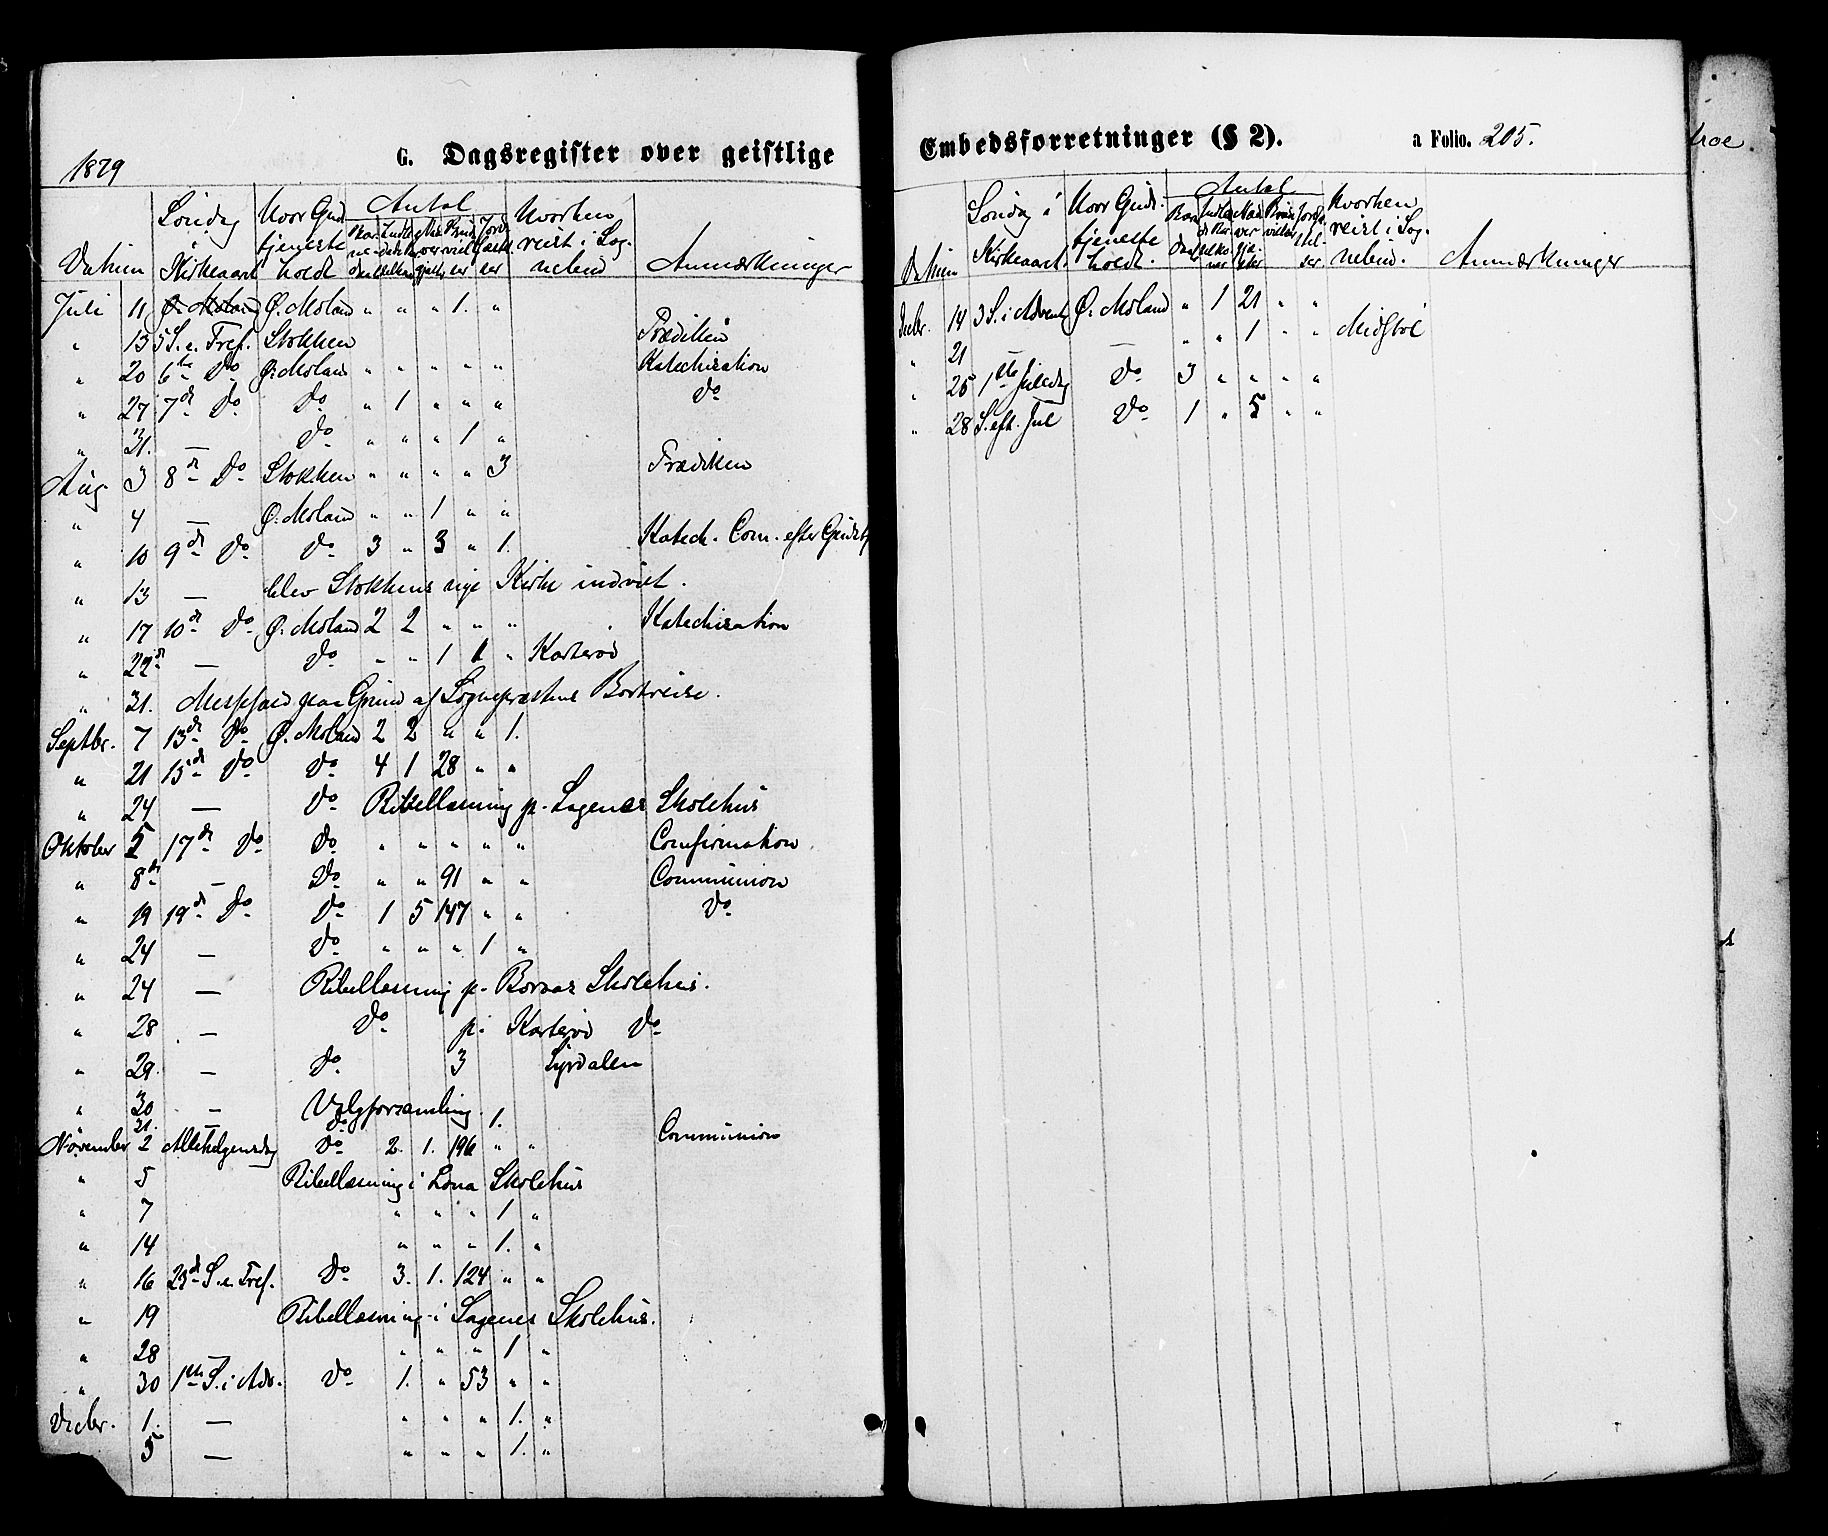 1879
G. Dagsregister over geistlige
Datum Søndag i Kirkeaaret Hvor Gudstjeneste holdt Antal Hvorhen reist i Sognebud Anmærkninger
Juli 11 Ø. Moland Ø. Moland " " " 1. "
" 13 5 S. e. Tref. Stokken Prædiken
" 20 6te Do Ø. Moland " " " " " Katechisation
" 27 7de Do Do " 1 " " " Do
" 31. — Do " " " 1 "
Aug. 3 8de Do Stokken " " " " 3 Prædiken
" 4 — Ø. Moland " " 1 " "
" 10 9de Do Do 3 " 3 " 1. Katech. Com. efter Gudstj
" 13 — blev Stokkens nye Kirke indviet.
" 17 10de Do Ø. Moland 2 2 " " " Katechisation
" 22de — Do " " 1 1 " Kasterød
" 31. Messfald paa Grund af Sognepræstens Bortreise.
Septbr. 7 13de Do Ø. Moland 2 2 " " 1.
" 21 15de Do Do 4 1 28 " "
" 24 — Do Bibellæsning p. Sagenes Skolehus
Oktober 5 17de Do Do " " " " " Confirmation.
" 8de — Do " " 91 " " Communion
" 19 19de Do Do 1 5 147 " " Do
" 24 — Do " " " 1 "
" 24 — Bibellæsning p. Boraas Skolehus.
" 28 — Do p. Kasterød Do
" 29. — Do 3 Lyrdalen
" 30 — Valgforsamling.
31. — Do 1.
November 2 Allehelgensdag Do 2. 1. 196 " " Communion
" 5 Bibellæsning i Lona Skolehus
" 7 " " " 1 "
" 14 " " " 1. "
" 16 23de S. e. Tref. Do 3. 1. 124 " "
" 19 Bibellæsning i Sagenes Skolehus.
" 28 — " " " 1 "
" 30 1ste S. i Adv. Do 1. " 53 " "
Decbr. 1. — " " " 1. "
5 — " " " 1. "
Embedsforretninger (§ 2). a Folio. 205.
Datum Søndag i Kirkeaaret Hvor Gudstjeneste holdt. Antal Hvorhen reist i Sognebud. Anmærkninger
Decbr. 14 3 S. i Advent Ø. Moland " 1 21 " "
" 21 — — " " 1 " " Midstøl
" 25 1ste Juledag Do 3 " " " "
" 28 S. eft. Jul Do 1 " 5 " "